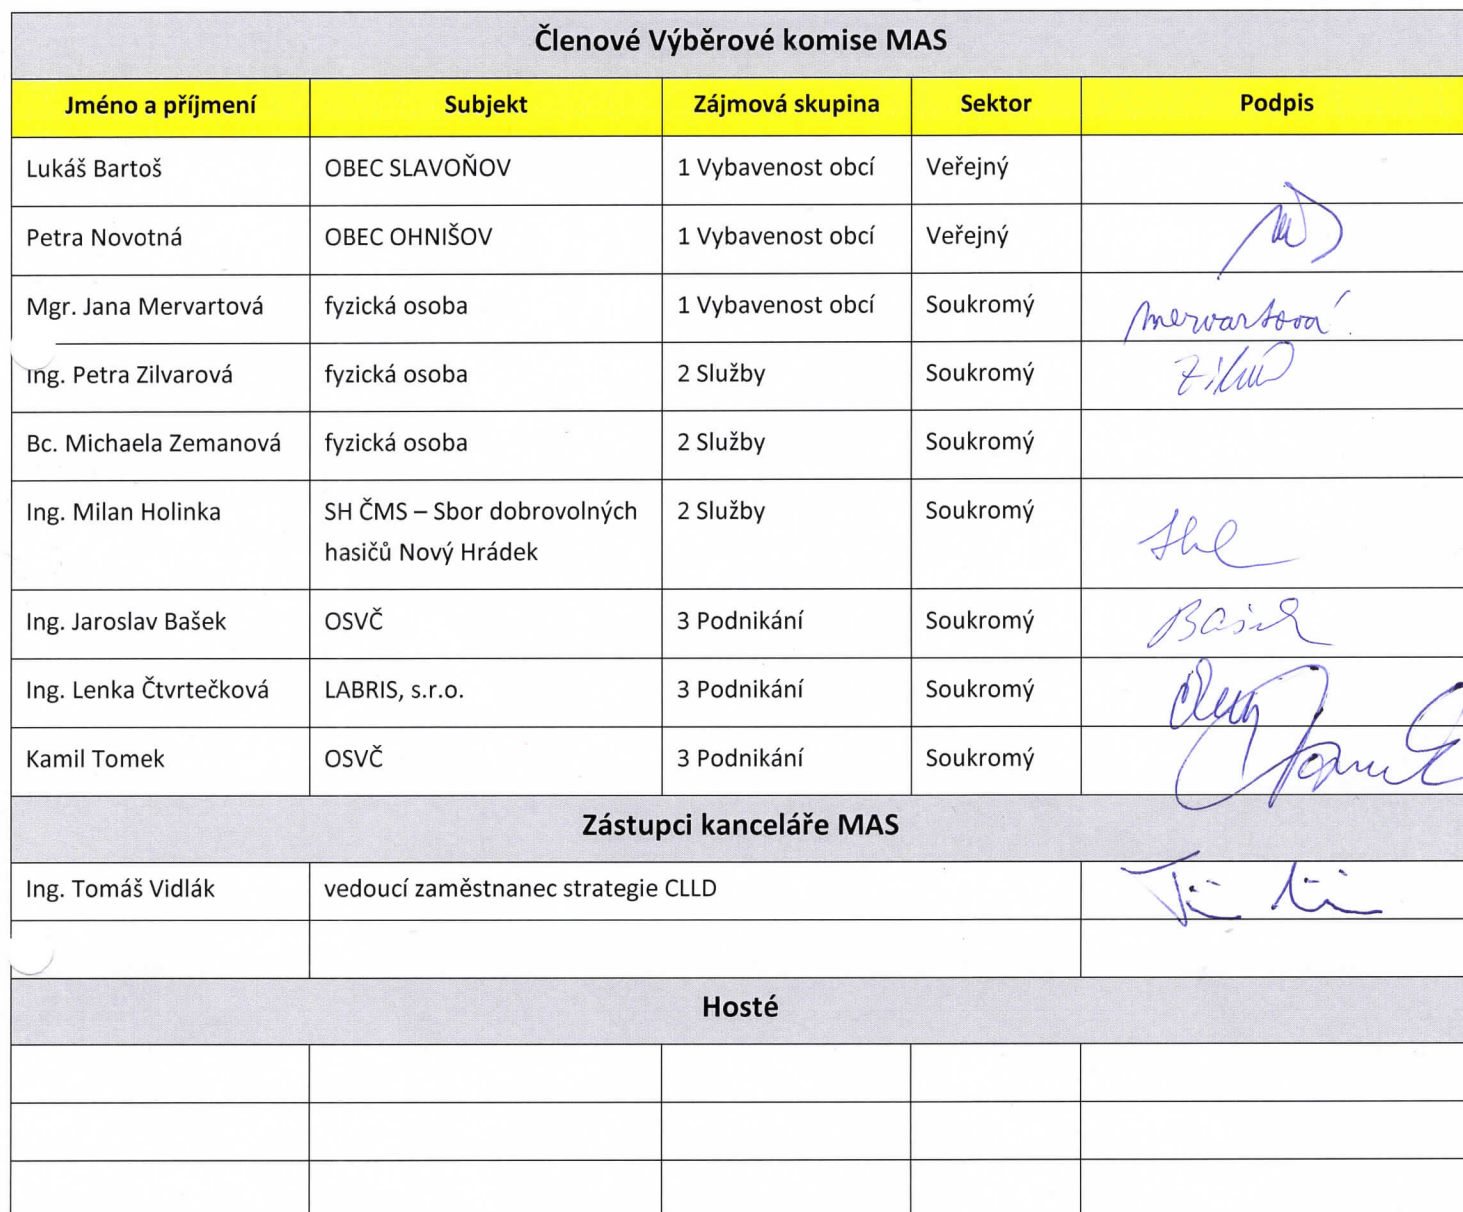 Členové Výběrové komise MAS
Jméno a příjmení Subjekt Zájmová skupina Sektor Podpis
Lukáš Bartoš OBEC SLAVOŇOV 1 Vybavenost obcí Veřejný
Petra Novotná OBEC OHNIŠOV 1 Vybavenost obcí Veřejný
Mgr. Jana Mervartová fyzická osoba 1 Vybavenost obcí Soukromý Mervartová
Ing. Petra Zilvarová fyzická osoba 2 Služby Soukromý
Bc. Michaela Zemanová fyzická osoba 2 Služby Soukromý
Ing. Milan Holinka SH ČMS – Sbor dobrovolných 2 Služby Soukromý
hasičů Nový Hrádek
Ing. Jaroslav Bašek OSVČ 3 Podnikání Soukromý Bašek
Ing. Lenka Čtvrtečková LABRIS, s.r.o. 3 Podnikání Soukromý
Kamil Tomek OSVČ 3 Podnikání Soukromý Tomek
Zástupci kanceláře MAS
Ing. Tomáš Vidlák vedoucí zaměstnanec strategie CLLD
Hosté